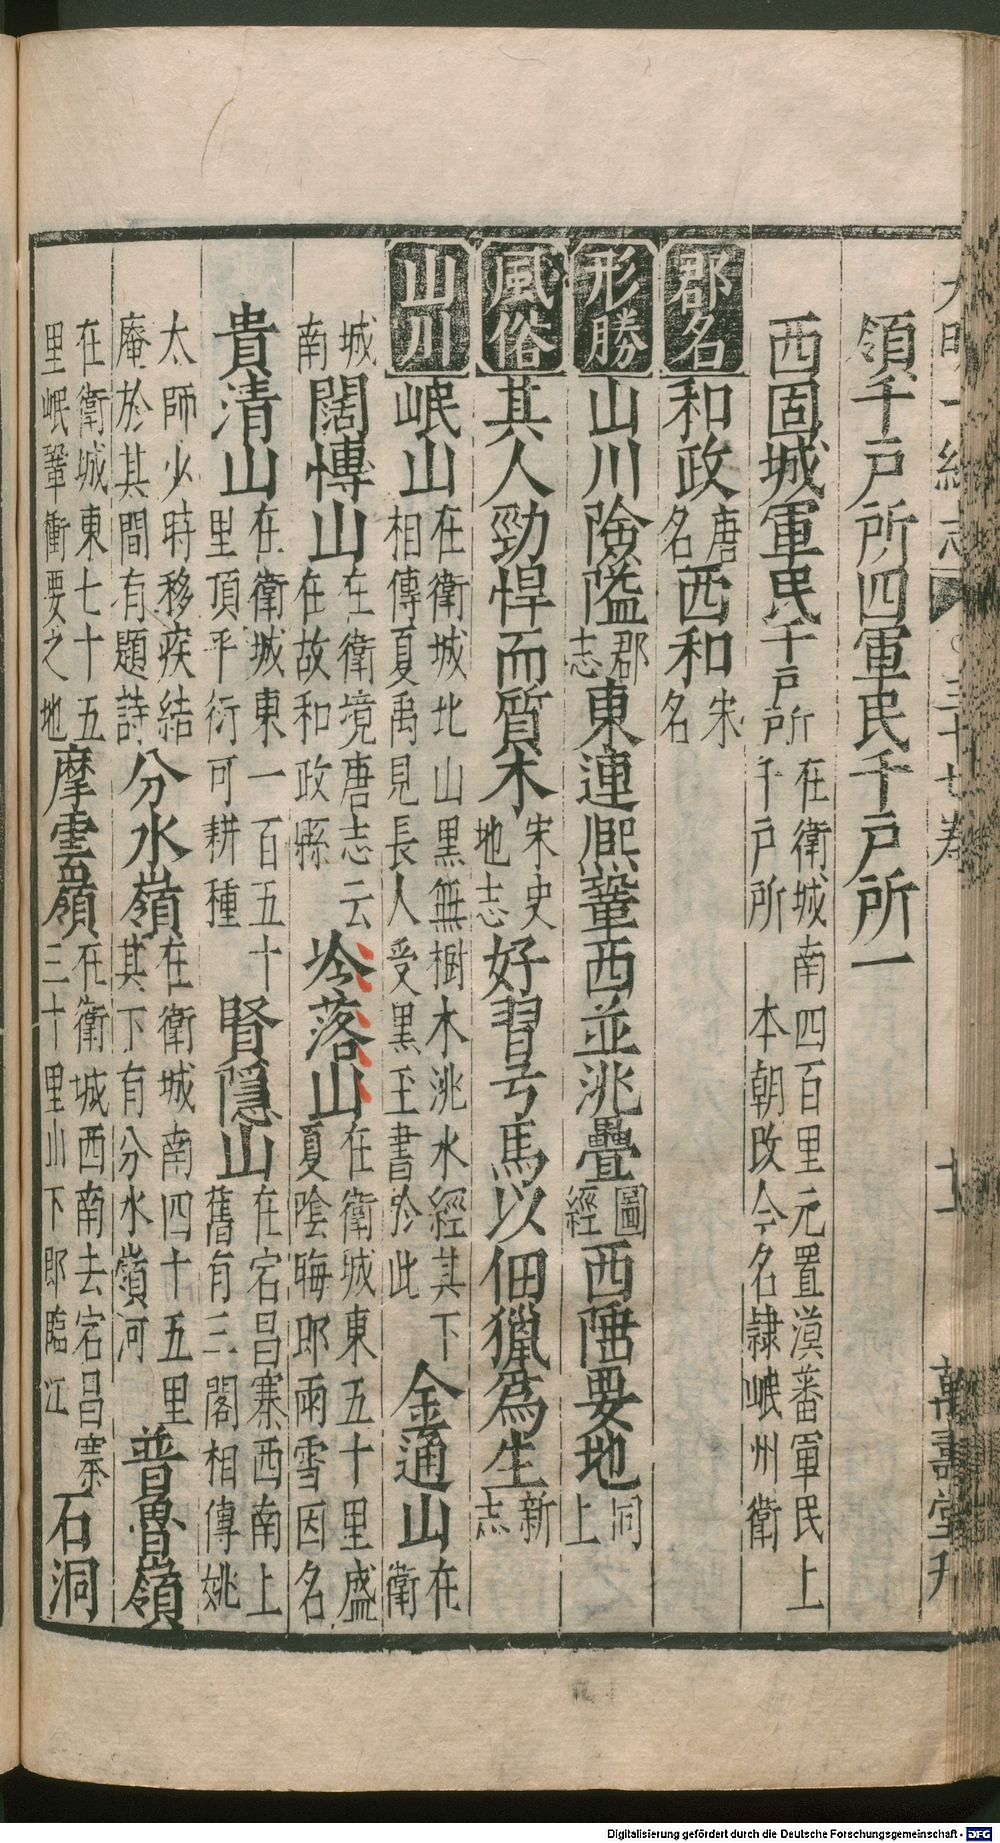 領千戸所四軍民千戸所一
西固城軍民千戸所在衛城南四百里元置漢蕃軍民上千戸所 本朝改今名隷岷州衛
郡名和政唐名西和宋名
形勝山川險隘郡志東連熈鞏西並洮疊圖經西陲要地同上
風俗其人勁悍而質木宋史地志好習弓馬以佃獵爲生新志
山川岷山在衛城北山黑無樹木洮水經其下相傳夏禹見長人受黑玉書於此金通山在衛
城南闊博山在衛境唐志云在故和政縣坽落山在衛城東五十里盛夏陰晦郎雨雪因名
貴清山在衛城東一百五十里頂平衍可耕種賢隱山在宕昌寨西南上舊有三閣相傳姚
太師少時移疾結庵於其間有題詩分水嶺在衛城南四十五里其下有分水嶺河普魯嶺
在衛城東七十五里岷鞏衝要之地摩雲嶺在衛城西南去宕昌寨三十里山下郎臨江石洞
三十七卷
萬壽堂刋
Digitalisierung gefördert durch die Deutsche Forschungsgemeinschaft - DFG